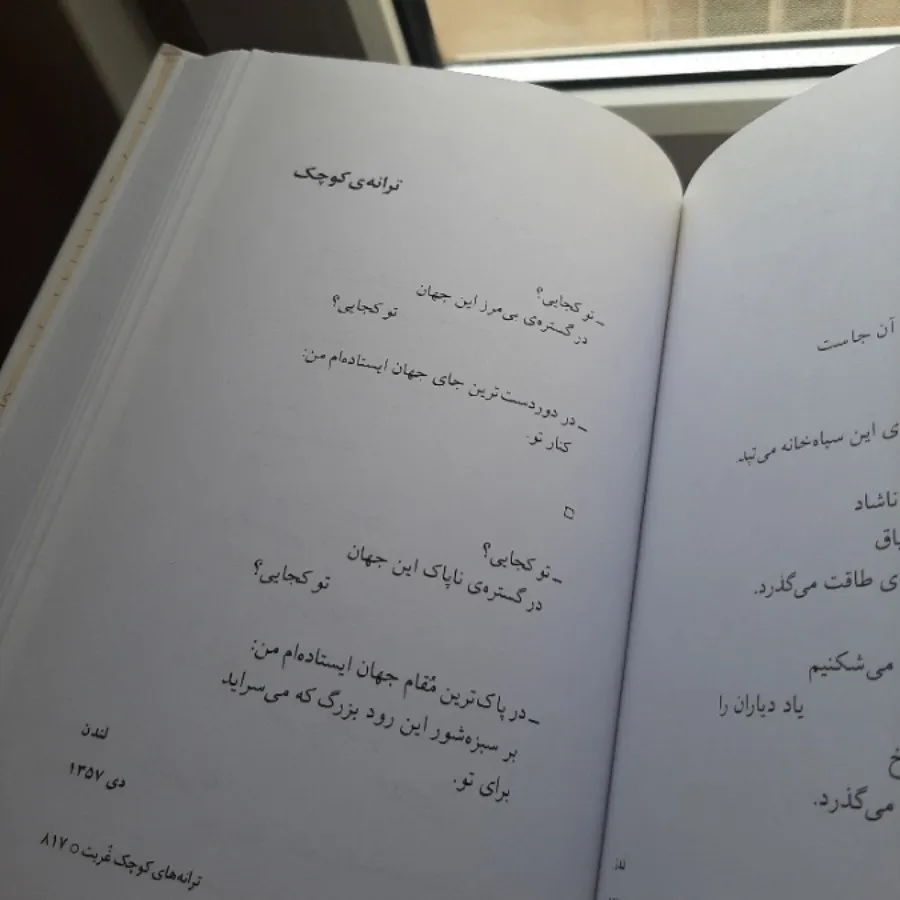 ترانه‌ی کوچک
ــ تو کجایی؟
در گستره‌ی بی‌مرز این جهان
تو کجایی؟
ــ در دوردست‌ترین جای جهان ایستاده‌ام من:
کنار تو.
□
ــ تو کجایی؟
در گستره‌ی ناپاک این جهان
تو کجایی؟
ــ در پاک‌ترین مُقام جهان ایستاده‌ام من:
بر سبزه‌شور این رود بزرگ که می‌سراید
برای تو.
لندن
دی ۱۳۵۷
ترانه‌های کوچک غُربت ○ ۸۱۷
آن جاست
این سیاه‌خانه می‌تپد.
ناشاد
طاقت می‌گذرد.
می‌شکنیم
یاد دیاران را
می‌گذرد.